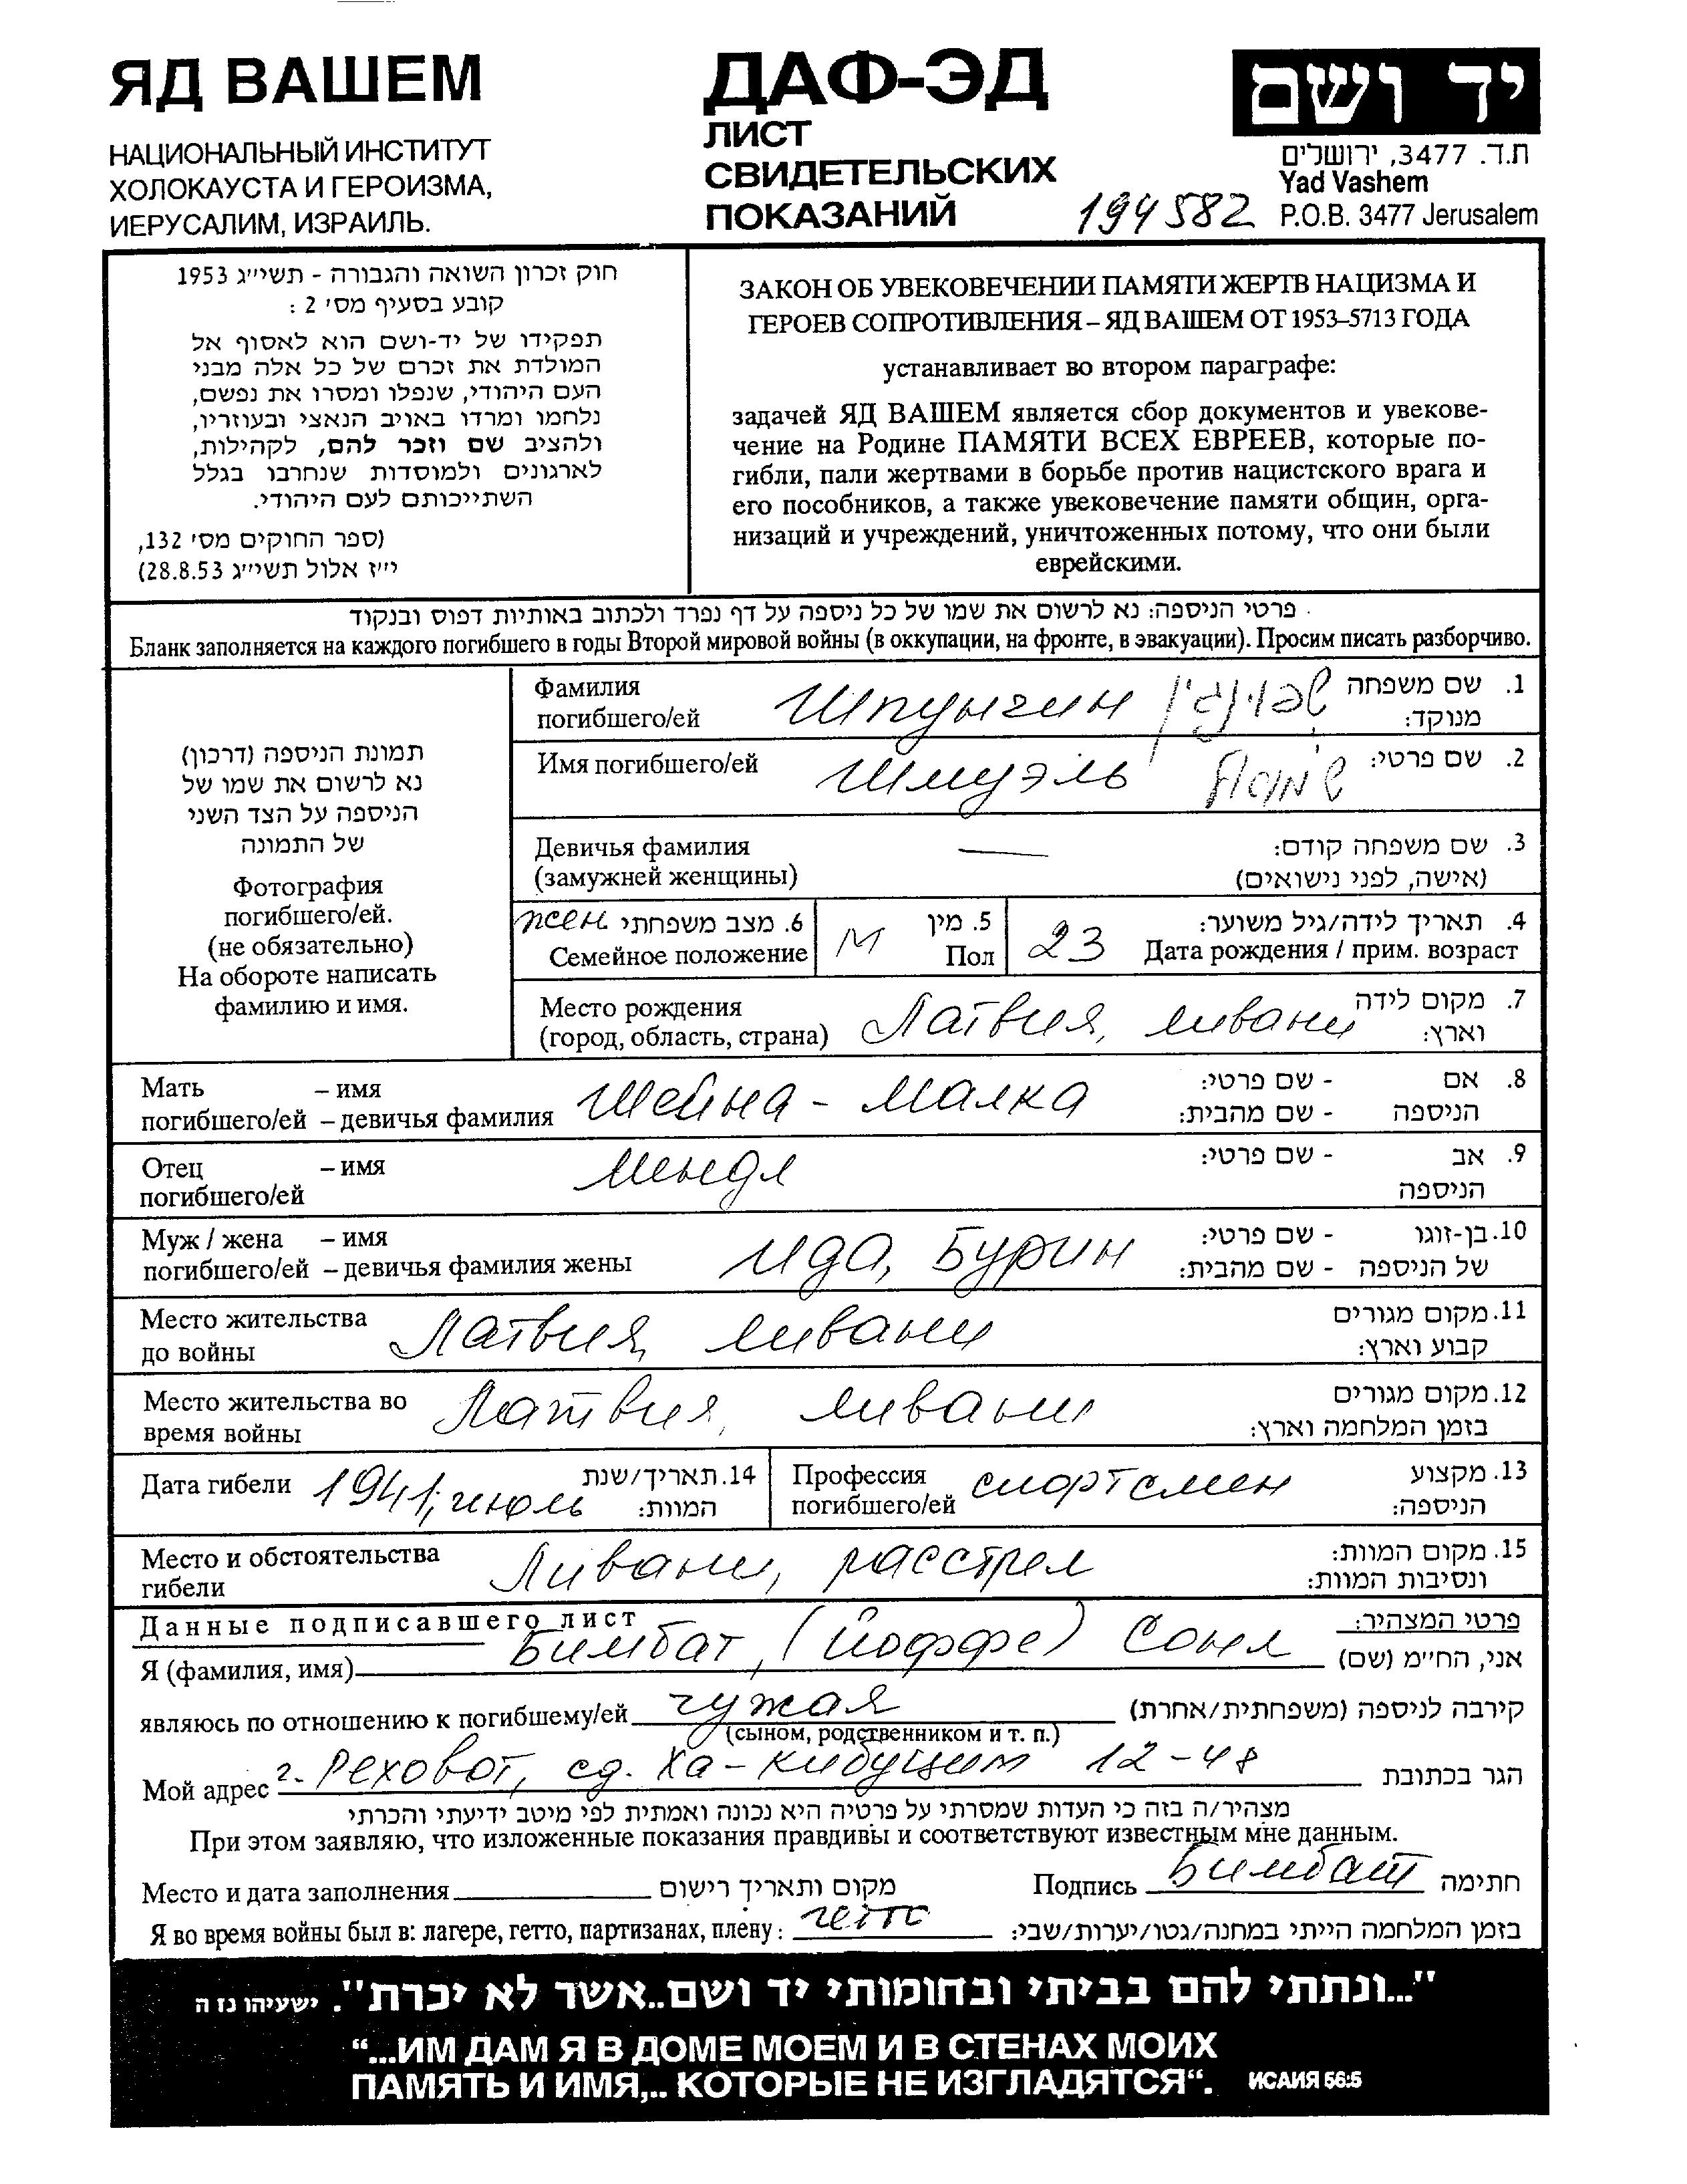 ЯД ВАШЕМ
НАЦИОНАЛЬНЫЙ ИНСТИТУТ
ХОЛОКАУСТА И ГЕРОИЗМА,
ИЕРУСАЛИМ, ИЗРАИЛЬ.
ДАФ-ЭД
ЛИСТ
СВИДЕТЕЛЬСКИХ
ПОКАЗАНИЙ
194582
יד ושם
ת.ד. 3477, ירושלים
Yad Vashem
P.O.B. 3477 Jerusalem
חוק זכרון השואה והגבורה - תשי״ג 1953
קובע בסעיף מס׳ 2 :
תפקידו של יד-ושם הוא לאסוף אל
המולדת את זכרם של כל אלה מבני
העם היהודי, שנפלו ומסרו את נפשם,
נלחמו ומרדו באויב הנאצי ובעוזריו,
ולהציב שם וזכר להם, לקהילות,
לארגונים ולמוסדות שנחרבו בגלל
השתייכותם לעם היהודי.
(ספר החוקים מס׳ 132,
י״ז אלול תשי״ג 28.8.53)
ЗАКОН ОБ УВЕКОВЕЧЕНИИ ПАМЯТИ ЖЕРТВ НАЦИЗМА И
ГЕРОЕВ СОПРОТИВЛЕНИЯ – ЯД ВАШЕМ ОТ 1953–5713 ГОДА
устанавливает во втором параграфе:
задачей ЯД ВАШЕМ является сбор документов и увекове-
чение на Родине ПАМЯТИ ВСЕХ ЕВРЕЕВ, которые по-
гибли, пали жертвами в борьбе против нацистского врага и
его пособников, а также увековечение памяти общин, орга-
низаций и учреждений, уничтоженных потому, что они были
еврейскими.
פרטי הניספה: נא לרשום את שמו של כל ניספה על דף נפרד ולכתוב באותיות דפוס ובנקוד
Бланк заполняется на каждого погибшего в годы Второй мировой войны (в оккупации, на фронте, в эвакуации). Просим писать разборчиво.
תמונת הניספה (דרכון)
נא לרשום את שמו של
הניספה על הצד השני
של התמונה
Фотография
погибшего/ей.
(не обязательно)
На обороте написать
фамилию и имя.
Фамилия שם משפחה .1
погибшего/ей Шпунгин שפונגין מנוקד:
Имя погибшего/ей Шмуэль שמואל שם פרטי: .2
Девичья фамилия — שם משפחה קודם: .3
(замужней женщины) (אישה, לפני נישואים)
жен 6. מצב משפחתי М 5. מין 23 תאריך לידה/גיל משוער: .4
Семейное положение Пол Дата рождения / прим. возраст
Место рождения מקום לידה .7
(город, область, страна) Латвия, ливани וארץ:
Мать – имя Шейна - Малка - שם פרטי: אם .8
погибшего/ей – девичья фамилия - שם מהבית: הניספה
Отец – имя Мендл - שם פרטי: אב .9
погибшего/ей הניספה
Муж / жена – имя Ида, Бурин - שם פרטי: בן-זוגו .10
погибшего/ей – девичья фамилия жены - שם מהבית: של הניספה
Место жительства Латвия, ливани מקום מגורים .11
до войны קבוע וארץ:
Место жительства во Латвия, ливани מקום מגורים .12
время войны בזמן המלחמה וארץ:
Дата гибели 1941, июль 14. תאריך/שנת
המוות:
Профессия спортсмен מקצוע .13
погибшего/ей הניספה:
Место и обстоятельства Ливани, расстрел מקום המוות: .15
гибели ונסיבות המוות:
Данные подписавшего лист פרטי המצהיר:
Я (фамилия, имя) Бимбат, (Йоффе) Соня אני, החי״מ (שם)
являюсь по отношению к погибшему/ей чужая קירבה לניספה (משפחתית/אחרת)
(сыном, родственником и т. п.)
Мой адрес г. Реховот, сд. Ха-кибуцим 12-48 הגר בכתובת
מצהיר/ה בזה כי העדות שמסרתי על פרטיה היא נכונה ואמתית לפי מיטב ידיעתי והכרתי
При этом заявляю, что изложенные показания правдивы и соответствуют известным мне данным.
Место и дата заполнения מקום ותאריך רישום Подпись Бимбат חתימה
Я во время войны был в: лагере, гетто, партизанах, плену: гетто בזמן המלחמה הייתי במחנה/גטו/יערות/שבי:
"...ונתתי להם בביתי ובחומותי יד ושם..אשר לא יכרת". ישעיהו נז ה
“...ИМ ДАМ Я В ДОМЕ МОЕМ И В СТЕНАХ МОИХ
ПАМЯТЬ И ИМЯ,.. КОТОРЫЕ НЕ ИЗГЛАДЯТСЯ“. ИСАИЯ 56:5